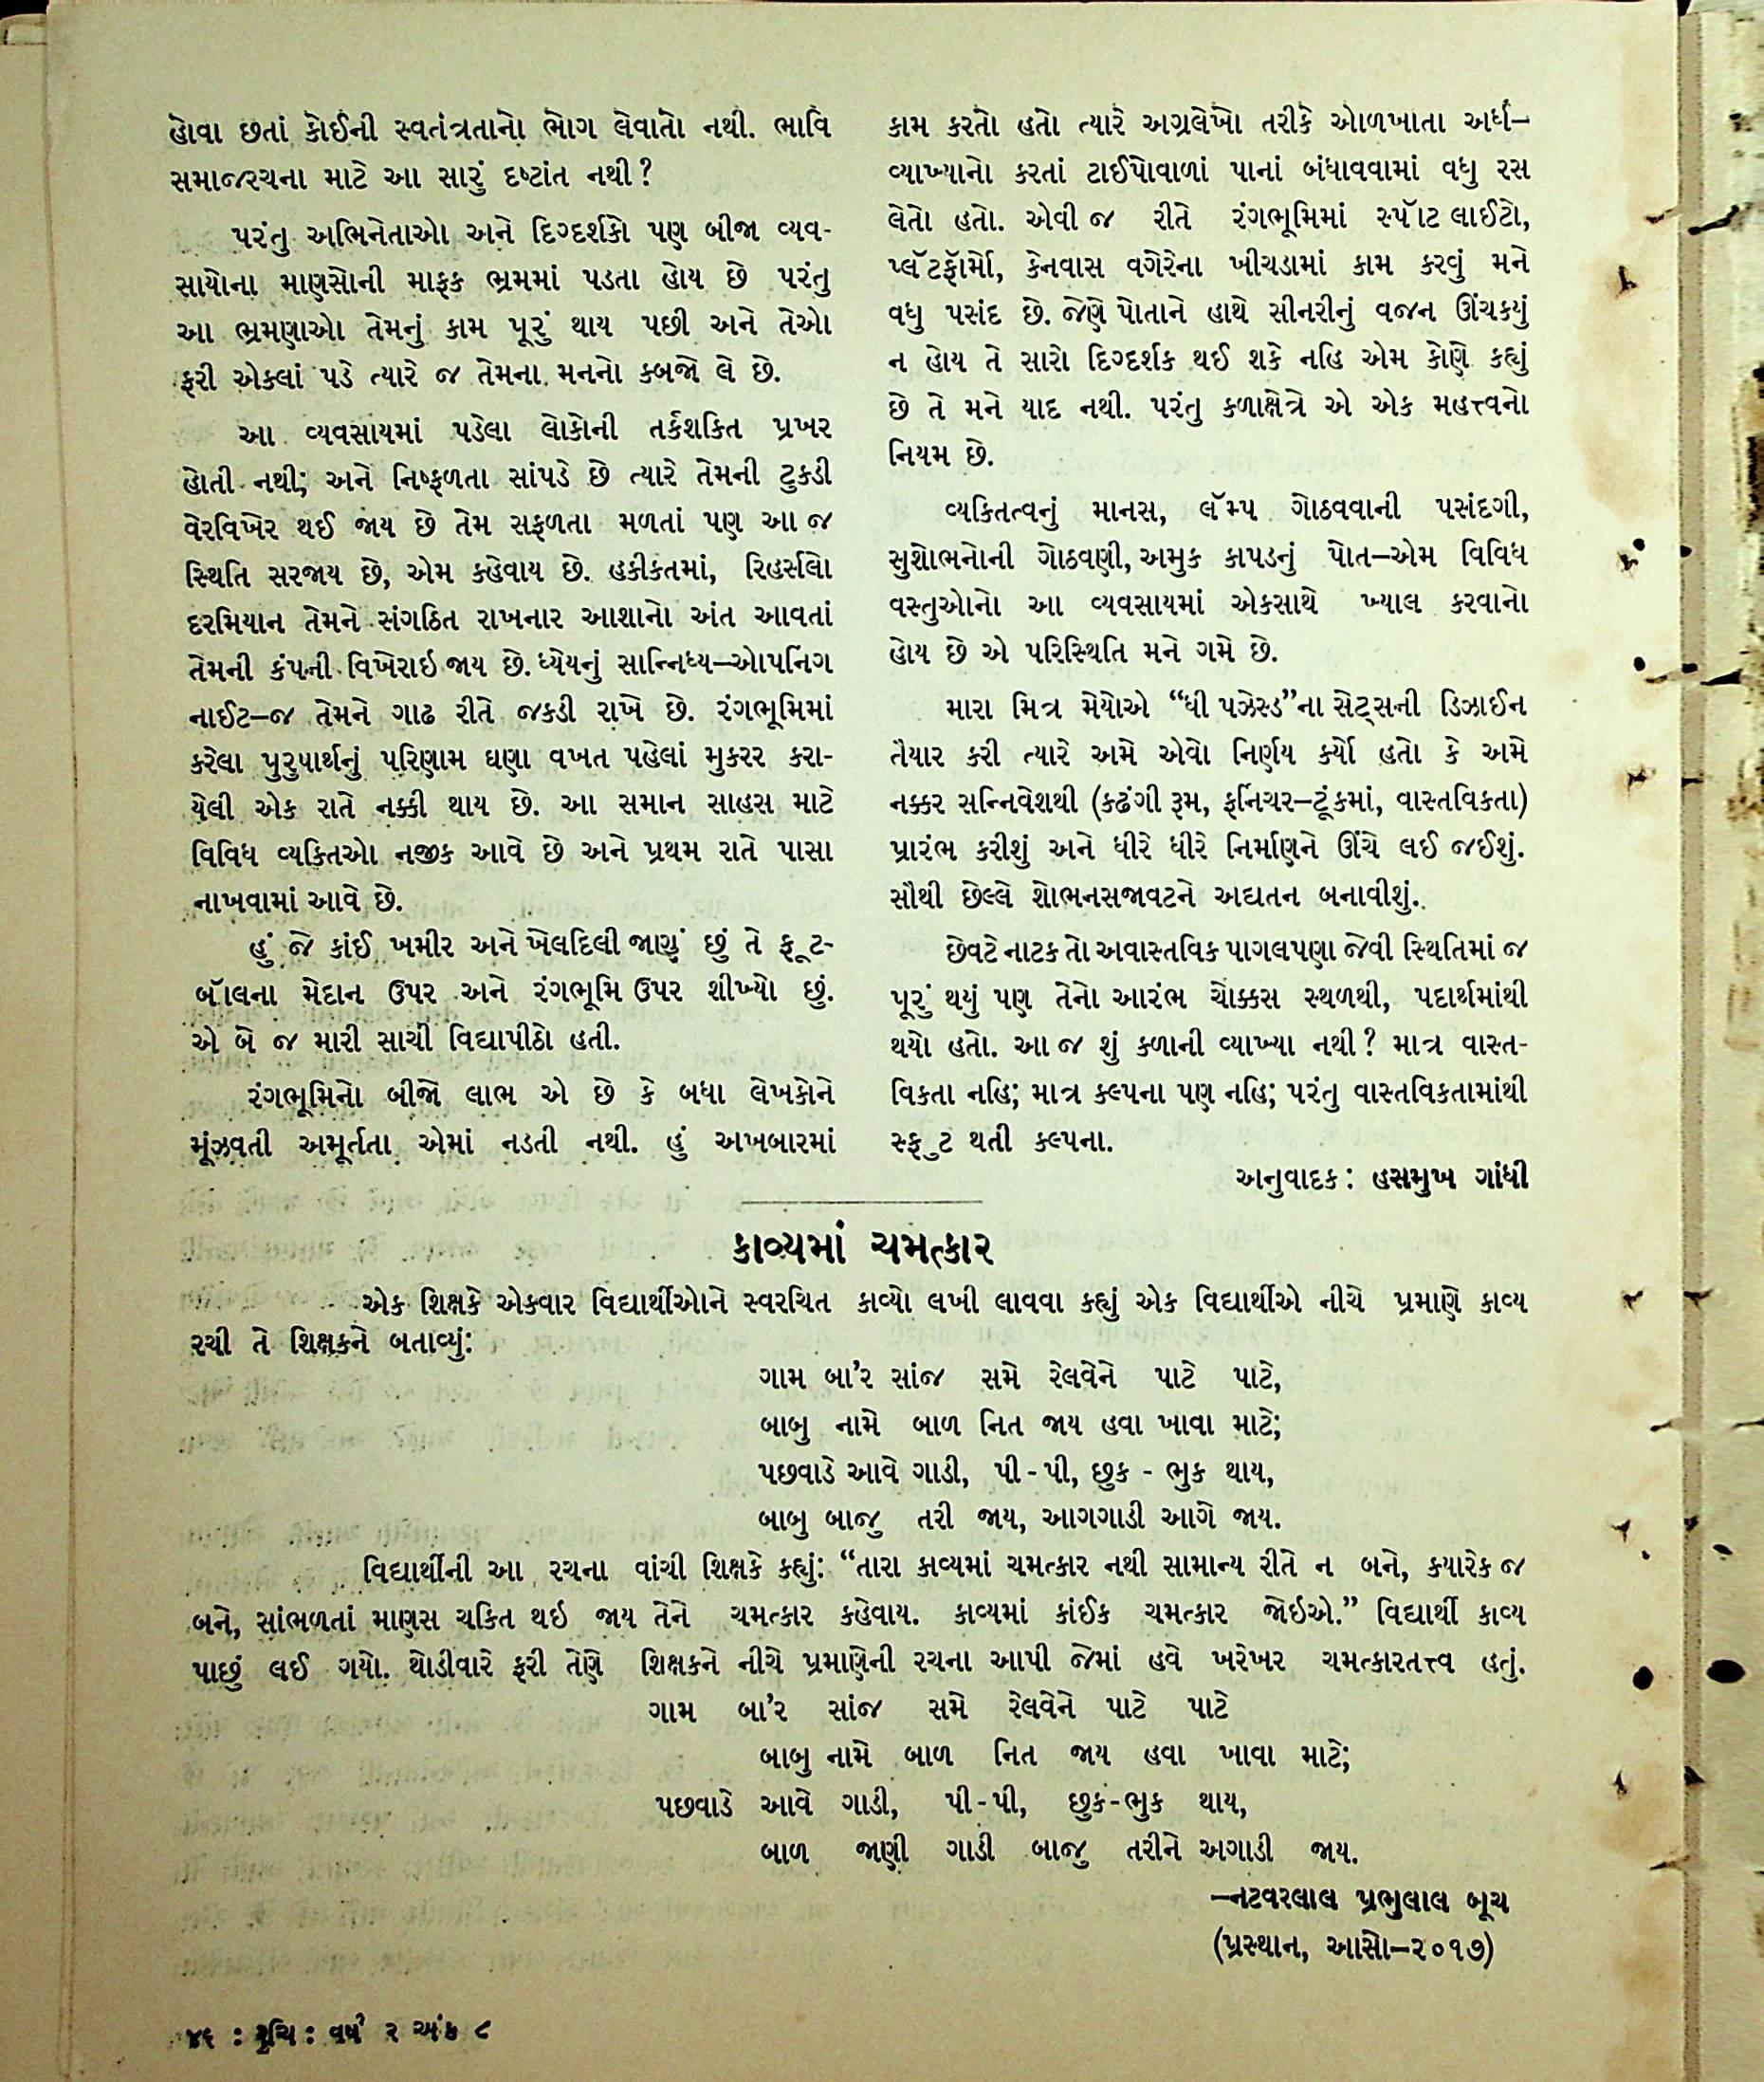 હોવા છતાં કોઈની સ્વતંત્રતાનો ભોગ લેવાતો નથી. ભાવિ
સમાજરચના માટે આ સારું દષ્ટાંત નથી?
પરંતુ અભિનેતાઓ અને દિગ્દર્શકો પણ બીજા વ્યવ-
સાયોના માણસોની માફક ભ્રમમાં પડતા હોય છે પરંતુ
આ ભ્રમણાઓ તેમનું કામ પૂરું થાય પછી અને તેઓ
ફરી એકલાં પડે ત્યારે જ તેમના મનનો કબજો લે છે.
આ વ્યવસાયમાં પડેલા લોકોની તર્કશકિત પ્રખર
હોતી નથી; અને નિષ્ફળતા સાંપડે છે ત્યારે તેમની ટુકડી
વેરવિખેર થઈ જાય છે તેમ સફળતા મળતાં પણ આ જ
સ્થિતિ સરજાય છે, એમ કહેવાય છે. હકીકતમાં, રિહર્સલો
દરમિયાન તેમને સંગઠિત રાખનાર આશાનો અંત આવતાં
તેમની કંપની વિખેરાઇ જાય છે. ધ્યેયનું સાન્નિધ્ય—ઓપનિંગ
નાઈટ—જ તેમને ગાઢ રીતે જકડી રાખે છે. રંગભૂમિમાં
કરેલા પુરુષાર્થનું પરિણામ ઘણા વખત પહેલાં મુકરર કરા-
યેલી એક રાતે નક્કી થાય છે. આ સમાન સાહસ માટે
વિવિધ વ્યકિતઓ નજીક આવે છે અને પ્રથમ રાતે પાસા
નાખવામાં આવે છે.
હું જે કાંઈ ખમીર અને ખેલદિલી જાણું છું તે ફૂટ-
બૉલના મેદાન ઉપર અને રંગભૂમિ ઉપર શીખ્યો છું.
એ બે જ મારી સાચી વિદ્યાપીઠો હતી.
રંગભૂમિનો બીજો લાભ એ છે કે બધા લેખકોને
મૂંઝવતી અમૂર્તતા એમાં નડતી નથી. હું અખબારમાં
કામ કરતો હતો ત્યારે અગ્રલેખો તરીકે ઓળખાતા અર્ધ—
વ્યાખ્યાનો કરતાં ટાઈપોવાળાં પાનાં બંધાવવામાં વધુ રસ
લેતો હતો. એવી જ રીતે રંગભૂમિમાં સ્પૉટ લાઈટો,
પ્લૅટફૉર્મો, કેનવાસ વગેરેના ખીચડામાં કામ કરવું મને
વધુ પસંદ છે. જેણે પોતાને હાથે સીનરીનું વજન ઊંચકયું
ન હોય તે સારો દિગ્દર્શક થઈ શકે નહિ એમ કોણે કહ્યું
છે તે મને યાદ નથી. પરંતુ કળાક્ષેત્રે એ એક મહત્ત્વનો
નિયમ છે.
વ્યકિતત્વનું માનસ, લૅમ્પ ગોઠવવાની પસંદગી,
સુશોભનોની ગોઠવણી, અમુક કાપડનું પોત—એમ વિવિધ
વસ્તુઓનો આ વ્યવસાયમાં એકસાથે ખ્યાલ કરવાનો
હોય છે એ પરિસ્થિતિ મને ગમે છે.
મારા મિત્ર મેયોએ “ધી પઝેસ્ડ”ના સેટ્સની ડિઝાઈન
તૈયાર કરી ત્યારે અમે એવો નિર્ણય કર્યો હતો કે અમે
નક્કર સન્નિવેશથી (કઢંગી રૂમ, ફર્નિચર—ટૂંકમાં, વાસ્તવિકતા)
પ્રારંભ કરીશું અને ધીરે ધીરે નિર્માણને ઊંચે લઈ જઈશું.
સૌથી છેલ્લે શોભનસજાવટને અદ્યતન બનાવીશું.
છેવટે નાટક તો અવાસ્તવિક પાગલપણા જેવી સ્થિતિમાં જ
પૂરું થયું પણ તેનો આરંભ ચોક્કસ સ્થળથી, પદાર્થમાંથી
થયો હતો. આ જ શું કળાની વ્યાખ્યા નથી? માત્ર વાસ્ત-
વિકતા નહિ; માત્ર કલ્પના પણ નહિ; પરંતુ વાસ્તવિકતામાંથી
સ્ફુટ થતી કલ્પના.
અનુવાદક: હસમુખ ગાંધી
કાવ્યમાં ચમત્કાર
એક શિક્ષકે એકવાર વિદ્યાર્થીઓને સ્વરચિત કાવ્યો લખી લાવવા કહ્યું એક વિદ્યાર્થીએ નીચે પ્રમાણે કાવ્ય
રચી તે શિક્ષકને બતાવ્યું:
ગામ બા'ર સાંજ સમે રેલવેને પાટે પાટે,
બાબુ નામે બાળ નિત જાય હવા ખાવા માટે;
પછવાડે આવે ગાડી, પી-પી, છુક - ભુક થાય,
બાબુ બાજુ તરી જાય, આગગાડી આગે જાય.
વિદ્યાર્થીની આ રચના વાંચી શિક્ષકે કહ્યું: “તારા કાવ્યમાં ચમત્કાર નથી સામાન્ય રીતે ન બને, કયારેક જ
બને, સાંભળતાં માણસ ચકિત થઇ જાય તેને ચમત્કાર કહેવાય. કાવ્યમાં કાંઈક ચમત્કાર જોઇએ.” વિદ્યાર્થી કાવ્ય
પાછું લઈ ગયો. થોડીવારે ફરી તેણે શિક્ષકને નીચે પ્રમાણેની રચના આપી જેમાં હવે ખરેખર ચમત્કારતત્ત્વ હતું.
ગામ બા'ર સાંજ સમે રેલવેને પાટે પાટે
બાબુ નામે બાળ નિત જાય હવા ખાવા માટે;
પછવાડે આવે ગાડી, પી-પી, છુક-ભુક થાય,
બાળ જાણી ગાડી બાજુ તરીને અગાડી જાય.
—નટવરલાલ પ્રભુલાલ બૂચ
(પ્રસ્થાન, આસો—૨૦૧૭)
૪૬ : રુચિ : વર્ષ ૨ અંક ૮